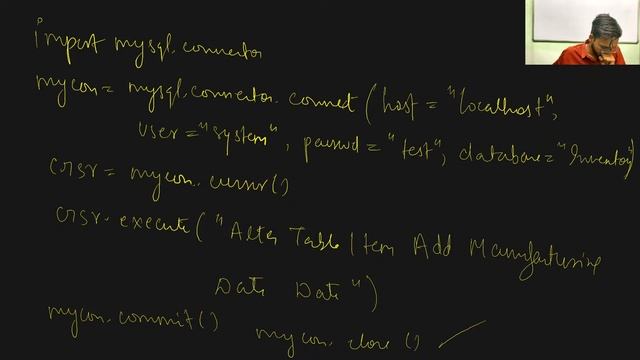 import mysql.connector
mycon = mysql.connector.connect (host = "localhost",
user = "system", passwd = "test", database = "Inventory")
crsr = mycon.cursor()
crsr.execute( "Alter Table Item Add Manufacturing
Date Date ")
mycon.commit() mycon.close()